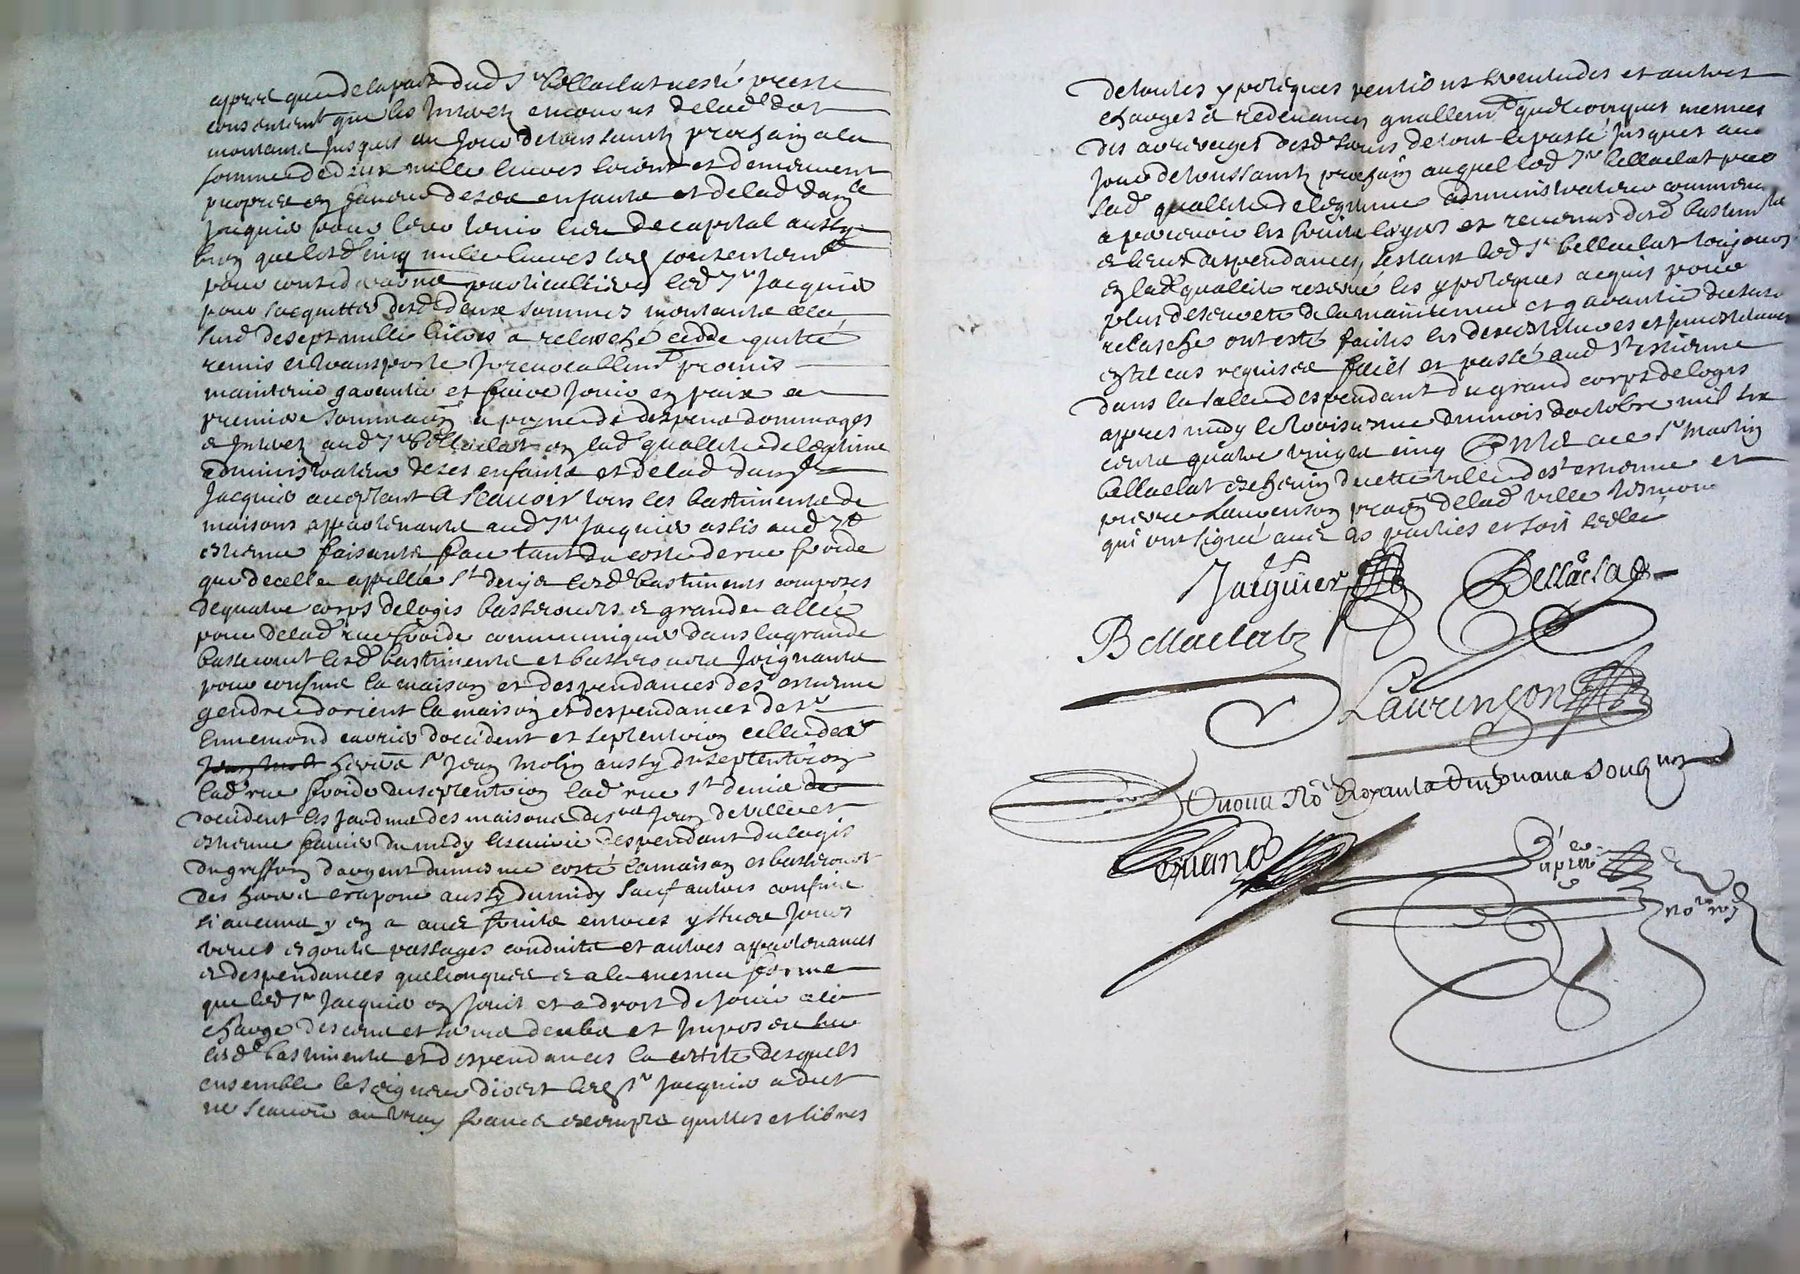 apres que de la part dud Sr Bellaclat a esté presté
consentement que les Interetz encourus de lad dot
montants jusques au jour de toussaintz prochain a la
somme de deux mille livres soient et demeurent
propres en faveur desd enfants et de lad dam.lle
Jacquier pour leur tenir lieu de capital aussy
bien que lesd cinq mille livres
pour considerations particullieres led Sr Jacquier
pour sacquitter desd deux sommes montants a la
susd de sept mille livres a relasché cedde quitté
remis et transporté Irrevocablem.t promis
maintenir garantir et faire jouir en paix a
premiere sommaon a peyne de despens dommages
& Interetz aud Sr Bellaclat en lad quallité de legitime
administrateur de ses enfants et de lad dam.lle
Jacquier acceptant A Scavoir tous les bastiments de
maisons appartenants aud Sr Jacquier assis aud St
estienne faisants face tant du coste de rue froide
que de celle appellée St denys lesd bastiments composes
de quatre corps de logis basse cours & grande allée
pour de lad rue froide communiquer dans la grande
basse court lesd bastiments et basses cours joignants
pour confins la maison et despendances de Sr estienne
gendre dorient la maison et despendances de Sr
Ennemond davrier doccident et septentrion celle des
Sr Jean Molin aussy du septentrion
lad rue froide du septentrion lad rue St denis
doccident les jardins des maisons des Jean deville et
estienne du midy lescuirie despendant du logis
du griffon dargent du mesme costé la maison et basse court
des aussy du midy sauf autres confins
si aucuns y en a avec leurs entrees yssues jours
veues esgouts passages conduits et autres appartenances
& despendances quelconques & a la mesme forme
que led Sr Jacquier en jouit et a droit de jouir a la
charge des cens et servis deubs et Imposes sur
lesd bastiments et despendances la cottité desquels
ensemble le seigneur direct led Sr Jacquier a dict
ne scavoir au vray francs exempts quittes et libres
de toutes ypoteques pentions servitudes et autres
charges & redevances gnallem.t quelconques mesmes
des arrerages desd servis de tout le passé jusques au
jour de toussaintz prochain auquel led Sr Bellaclat pour
lad quallité de legitime administrateur commencera
a percevoir les fruits loyers et revenus desd bastiments
& leurs despendances, sestant led Sr Bellaclat tousjours
en lad quallité reservé les ypoteques acquis pour
plus de seureté de la maintenue et garantie du susd
relasché ont esté faites les
en tel cas requises faict et passé aud St estienne
dans la salle despendant du grand corps de logis
apres midy le troisiesme du mois doctobre mil six
cents quatre vingts cinq
bellaclat eschevin de cette ville de St estienne et
pierre Laurenson de lad ville tesmoins
qui ont signé avec les parties et soit scellé
Jacquier Bellaclat
Bellaclat
Laurenson
Dupré
no.re royal